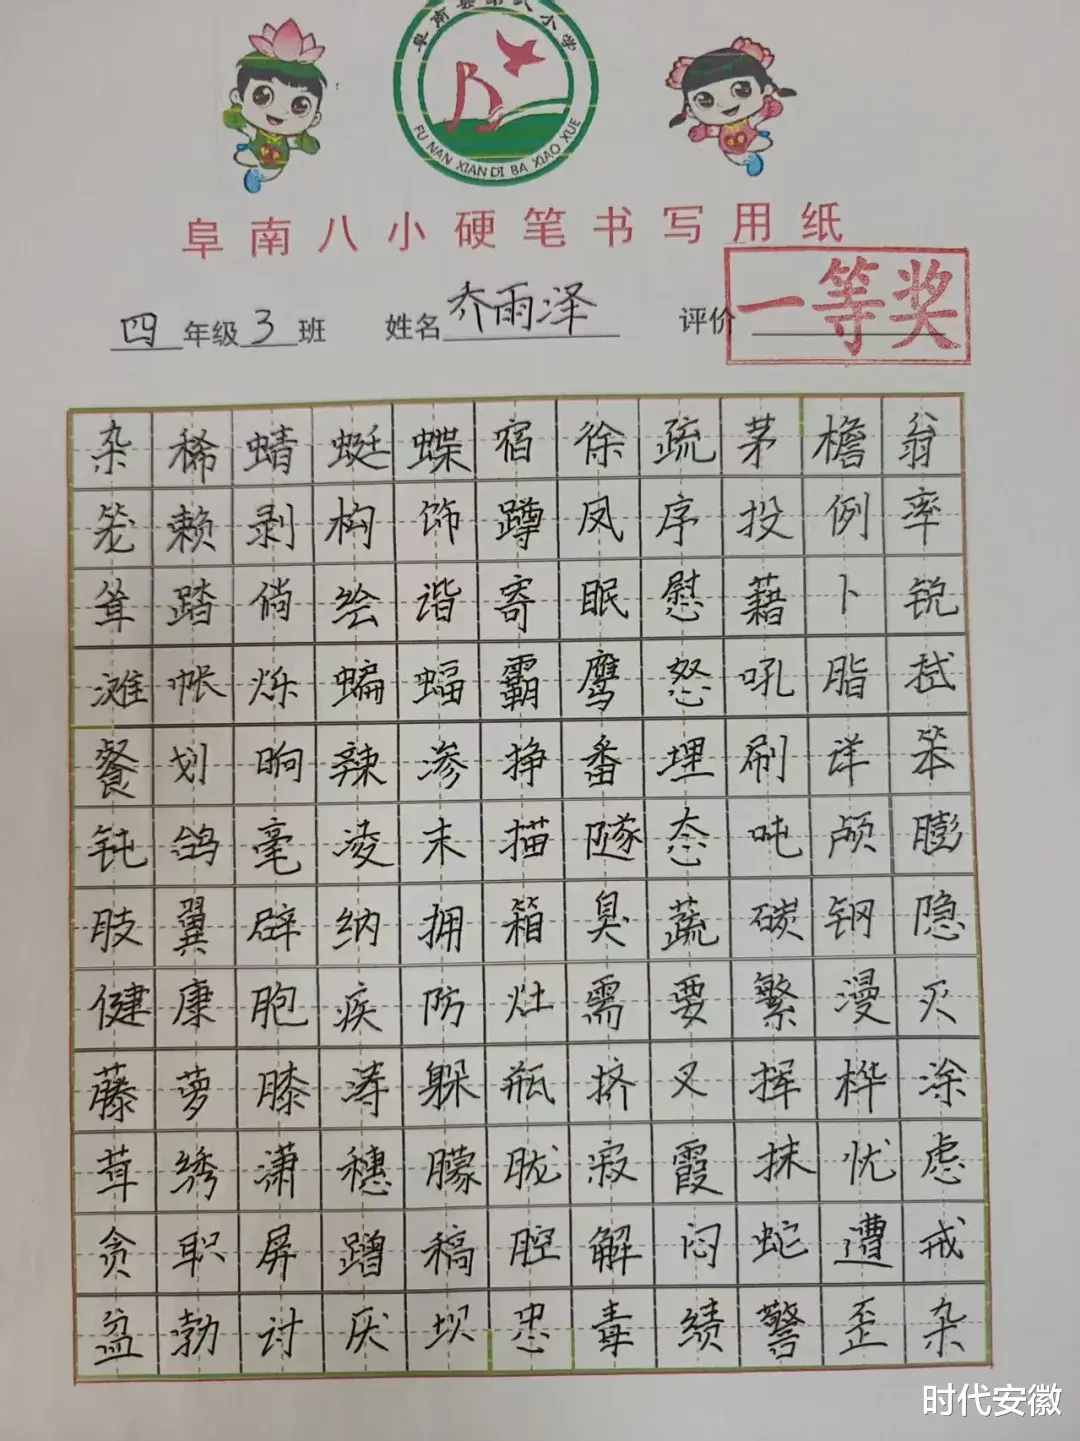 阜南县第八小学
FU NAN XIAN DI BA XIAO XUE
阜南八小硬笔书写用纸
四年级3班 姓名乔雨泽 评价 一等奖
杂稀蜻蜓蝶宿徐疏茅檐翁
笼赖剥构饰蹲凤序投例率
耸踏倘绘谐寄眠慰藉卜锐
滩帐烁蝙蝠霸鹰怒吼脂拭
餐划晌辣渗挣番埋刷详笨
钝鸽毫凌末描隧态吨颅膨
肢翼辟纳拥箱臭蔬碳钢隐
健康胞疾防灶需要繁漫灭
藤萝膝涛躲瓶挤叉挥桦涂
茸绣潇穗朦胧寂霞抹忧虑
贪职屏蹭稿腔解闷蛇遭戒
盆勃讨厌坝忠毒绩警歪杂
时代安徽